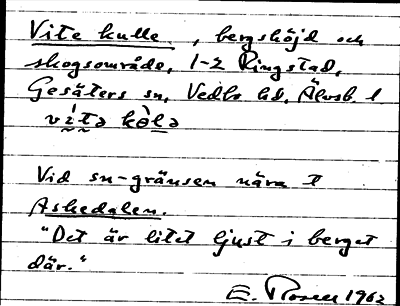 Vite kulle, bergshöjd och
skogsområde, 1-2 Ringstad,
Gesäters sn, Vedbo hd, Älvsb. l
Vid sn-gränsen nära t
Askedalen.
"Det är litet ljust i berget
där."
E. Rosell 1962